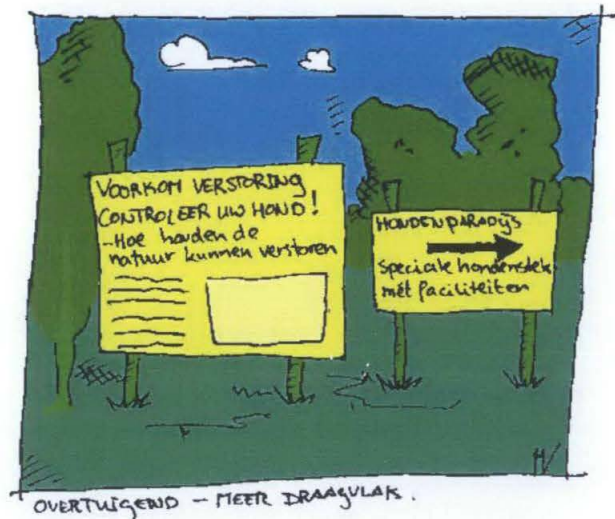 VOORKOM VERSTORING
CONTROLEER UW HOND!
-Hoe honden de
natuur kunnen verstoren
HONDENPARADIJS
Speciale hondenstek
mét faciliteiten
OVERTUIGEND - MEER DRAAGVLAK.